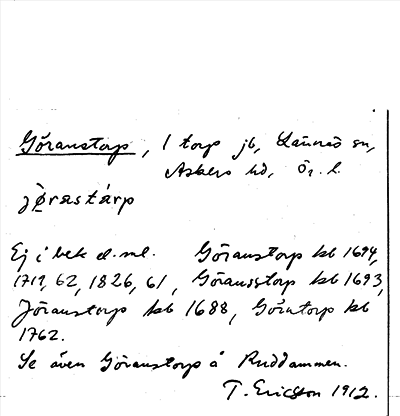 Göranstorp, 1 torp jb, Lännäs sn,
Askers hd, Ör. l.
jø̀rastárp
Ej i bek d. ml. Göranstorp kb 1694,
1719, 62, 1826, 61, Göransstorp kb 1693,
Jöranstorp kb 1688, Göratorp kb
1762.
Se även Göranstorp å Ruddammen.
T. Ericson 1912.